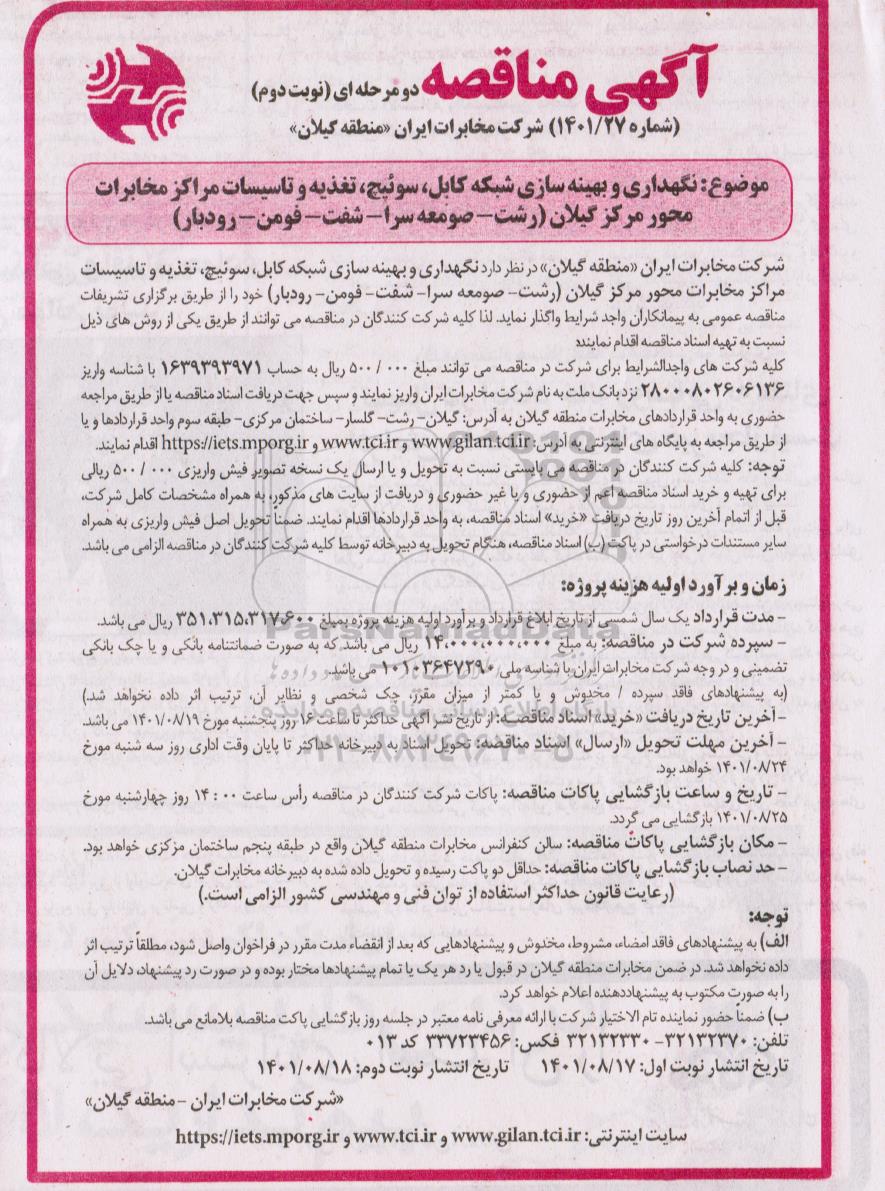 آگهی مناقصه دو مرحله ای (نوبت دوم)
(شماره ۱۴۰۱/۲۷) شرکت مخابرات ایران «منطقه گیلان»
موضوع: نگهداری و بهینه سازی شبکه کابل، سوئیچ، تغذیه و تاسیسات مراکز مخابرات
محور مرکز گیلان (رشت- صومعه سرا- شفت- فومن- رودبار)
شرکت مخابرات ایران «منطقه گیلان» در نظر دارد نگهداری و بهینه سازی شبکه کابل، سوئیچ، تغذیه و تاسیسات
مراکز مخابرات محور مرکز گیلان (رشت- صومعه سرا- شفت- فومن- رودبار) خود را از طریق برگزاری تشریفات
مناقصه عمومی به پیمانکاران واجد شرایط واگذار نماید. لذا کلیه شرکت کنندگان در مناقصه می توانند از طریق یکی از روش های ذیل
نسبت به تهیه اسناد مناقصه اقدام نمایند:
کلیه شرکت های واجدالشرایط برای شرکت در مناقصه می توانند مبلغ ۵۰۰/۰۰۰ ریال به حساب ۱۶۳۹۳۹۳۹۷۱ با شناسه واریز
۲۸۰۰۰۸۰۲۶۰۶۱۳۶ نزد بانک ملت به نام شرکت مخابرات ایران واریز نمایند و سپس جهت دریافت اسناد مناقصه یا از طریق مراجعه
حضوری به واحد قراردادهای مخابرات منطقه گیلان به آدرس: گیلان- رشت- گلسار- ساختمان مرکزی- طبقه سوم واحد قراردادها و یا
از طریق مراجعه به پایگاه های اینترنتی به آدرس: www.gilan.tci.ir و www.tci.ir و https://iets.mporg.ir اقدام نمایند.
توجه: کلیه شرکت کنندگان در مناقصه می بایستی نسبت به تحویل و یا ارسال یک نسخه تصویر فیش واریزی ۵۰۰/۰۰۰ ریالی
برای تهیه و خرید اسناد مناقصه اعم از حضوری و یا غیر حضوری و دریافت از سایت های مذکور، به همراه مشخصات کامل شرکت،
قبل از اتمام آخرین روز تاریخ دریافت «خرید» اسناد مناقصه، به واحد قراردادها اقدام نمایند. ضمناً تحویل اصل فیش واریزی به همراه
سایر مستندات درخواستی در پاکت (ب) اسناد مناقصه، هنگام تحویل به دبیرخانه توسط کلیه شرکت کنندگان در مناقصه الزامی می باشد.
زمان و برآورد اولیه هزینه پروژه:
- مدت قرارداد یک سال شمسی از تاریخ ابلاغ قرارداد و برآورد اولیه هزینه پروژه بمبلغ ۳۵۱،۳۱۵،۳۱۷،۶۰۰ ریال می باشد.
- سپرده شرکت در مناقصه: به مبلغ ۱۴،۰۰۰،۰۰۰،۰۰۰ ریال می باشد که به صورت ضمانتنامه بانکی و یا چک بانکی
تضمینی و در وجه شرکت مخابرات ایران با شناسه ملی ۱۰۱۰۳۶۴۷۲۹۰ می باشد.
(به پیشنهادهای فاقد سپرده / مخدوش و یا کمتر از میزان مقرر، چک شخصی و نظایر آن، ترتیب اثر داده نخواهد شد.)
- آخرین تاریخ دریافت «خرید» اسناد مناقصه: از تاریخ نشر آگهی حداکثر تا ساعت ۱۶ روز پنجشنبه مورخ ۱۴۰۱/۰۸/۱۹ می باشد.
- آخرین مهلت تحویل «ارسال» اسناد مناقصه: تحویل اسناد به دبیرخانه حداکثر تا پایان وقت اداری روز سه شنبه مورخ
۱۴۰۱/۰۸/۲۴ خواهد بود.
- تاریخ و ساعت بازگشایی پاکات مناقصه: پاکات شرکت کنندگان در مناقصه رأس ساعت ۱۴:۰۰ روز چهارشنبه مورخ
۱۴۰۱/۰۸/۲۵ بازگشایی می گردد.
- مکان بازگشایی پاکات مناقصه: سالن کنفرانس مخابرات منطقه گیلان واقع در طبقه پنجم ساختمان مرکزی خواهد بود.
- حد نصاب بازگشایی پاکات مناقصه: حداقل دو پاکت رسیده و تحویل داده شده به دبیرخانه مخابرات گیلان.
(رعایت قانون حداکثر استفاده از توان فنی و مهندسی کشور الزامی است.)
توجه:
الف) به پیشنهادهای فاقد امضاء، مشروط، مخدوش و پیشنهادهایی که بعد از انقضاء مدت مقرر در فراخوان واصل شود، مطلقاً ترتیب اثر
داده نخواهد شد. در ضمن مخابرات منطقه گیلان در قبول یا رد هر یک یا تمام پیشنهادها مختار بوده و در صورت رد پیشنهاد، دلایل آن
را به صورت مکتوب به پیشنهاددهنده اعلام خواهد کرد.
ب) ضمناً حضور نماینده تام الاختیار شرکت با ارائه معرفی نامه معتبر در جلسه روز بازگشایی پاکت مناقصه بلامانع می باشد.
تلفن: ۳۲۱۳۲۳۷۰- ۳۲۱۳۲۳۳۰ فکس: ۳۳۷۲۳۴۵۶ کد ۰۱۳
تاریخ انتشار نوبت اول: ۱۴۰۱/۰۸/۱۷ تاریخ انتشار نوبت دوم: ۱۴۰۱/۰۸/۱۸
«شرکت مخابرات ایران -منطقه گیلان»
سایت اینترنتی: www.gilan.tci.ir و www.tci.ir و https://iets.mporg.ir
ParsNamadData